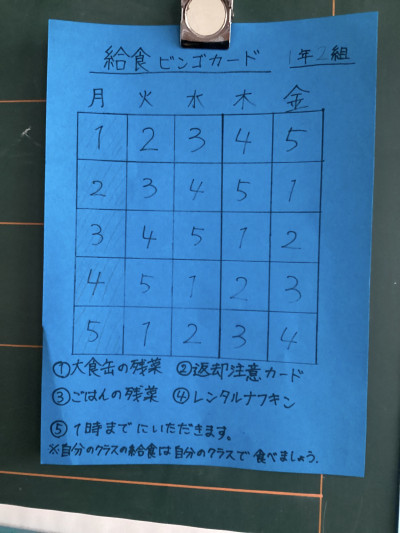 給食ビンゴカード 1年2組
月 火 水 木 金
1 2 3 4 5
2 3 4 5 1
3 4 5 1 2
4 5 1 2 3
5 1 2 3 4
①大食缶の残薬 ②返却注意カード
③ごはんの残薬 ④レンタルナフキン
⑤1時までにいただきます。
※自分のクラスの給食は自分のクラスで食べましょう.